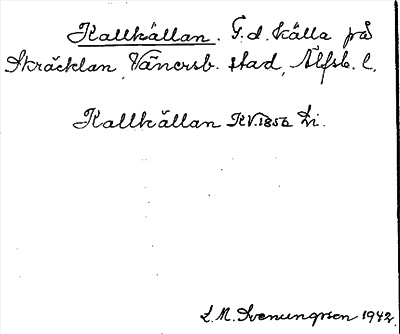 Kallkällan. F.d. källa på
Skräcklan, Vänersb. stad, Älfsb. l.
Kallkällan RV.1856 Li.
L.M. Svenungsson 1942.